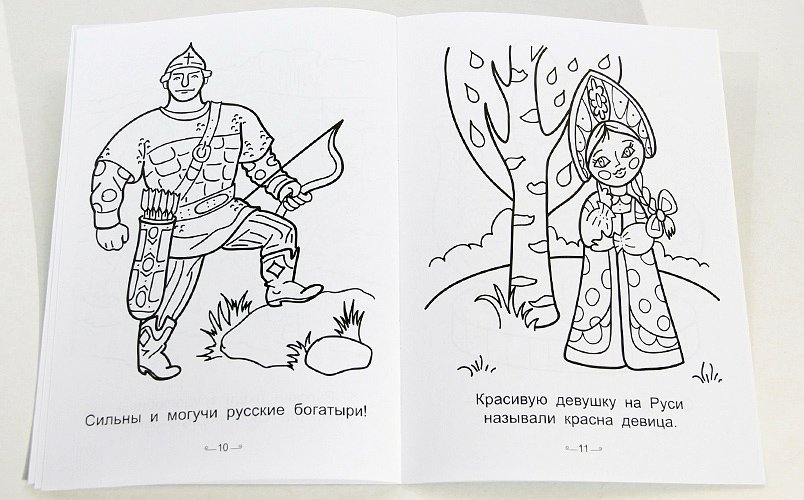 Сильны и могучи русские богатыри!
10
Красивую девушку на Руси
называли красна девица.
11